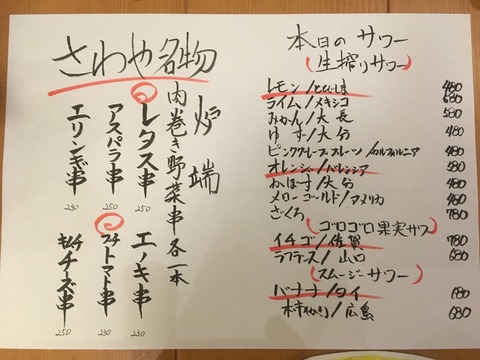 さわや名物
炉端
肉巻き野菜串 各一本
レタス串 250
アスパラ串 250
エリンギ串 230
エノキ串 230
プチトマト串 230
キムチチーズ串 250
本日のサワー
(生搾りサワー)
レモン/とびしま 480
ライム/メキシコ 680
みかん/大長 580
ゆず/大分 480
ピンクグレープフルーツ/カルフォルニア 480
オレンジ/バレンシア 580
かぼす/大分 480
メローゴールド/アメリカ 480
ざくろ 780
(ゴロゴロ果実サワー)
イチゴ/佐賀 780
ラフランス/山口 680
(スムージーサワー)
バナナ/タイ 680
/広島 680